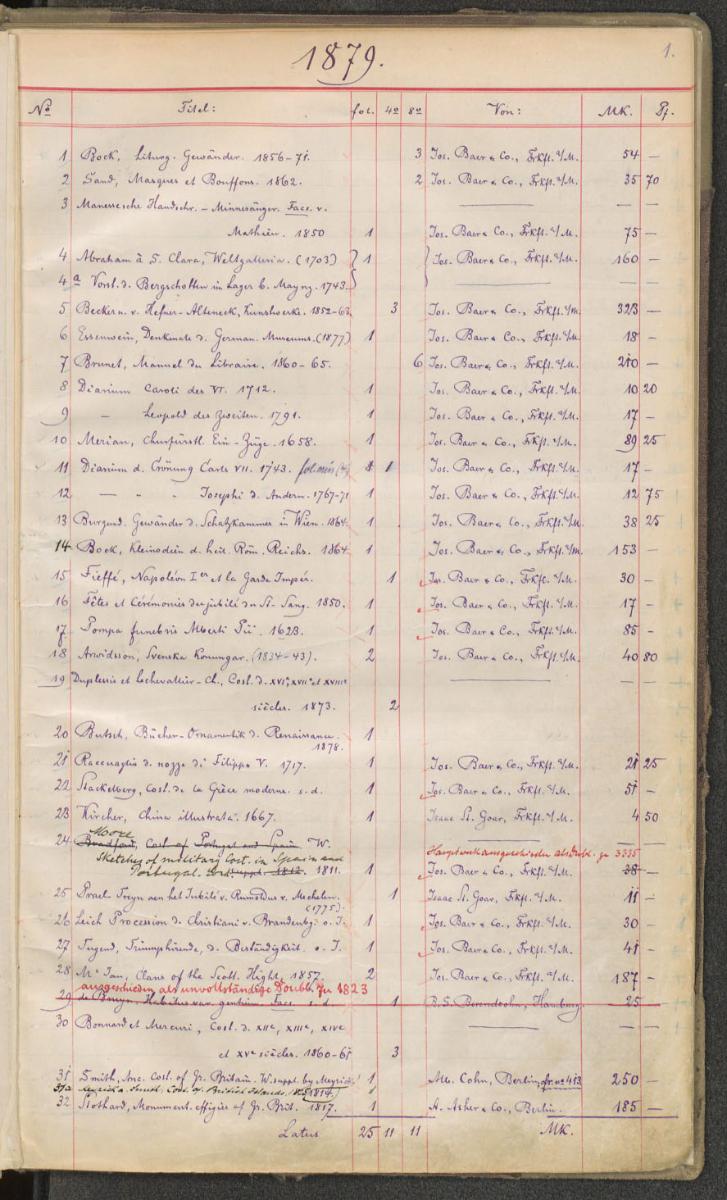 1879.
1.
No Titel: fol. 4o 8o Von: MK. Pf.
1 Bock, Liturg. Gewänder. 1856-71. 3 Jos. Baer & Co., Frkft. a/M. 54 —
2 Sand, Masques et Bouffons. 1862. 2 Jos. Baer & Co., Frkft. a/M. 35 70
3 Manessesche Handschr. – Minnesänger. Facs. v. — — —
Mathieu. 1850 1 Jos. Baer & Co., Frkft. a/M. 75 —
4 Abraham à S. Clara, Weltgalleria. (1703) 1 Jos. Baer & Co., Frkft. a/M. 160 —
4a Vorst. d. Bergschotten in Lager b. Maynz. 1743. — — —
5 Becker u. v. Hefner-Alteneck, Kunstwerke. 1852-63 3 Jos. Baer & Co., Frkft. a/M. 323 —
6 Essenwein, Denkmale d. German. Museums. (1877) 1 Jos. Baer & Co., Frkft. a/M. 18 —
7 Brunet, Manuel du Libraire. 1860-65. 6 Jos. Baer & Co., Frkft. a/M. 210 —
8 Diarium Caroli des VI. 1712. 1 Jos. Baer & Co., Frkft. a/M. 10 20
9 – Leopold des Zweiten. 1791. 1 Jos. Baer & Co., Frkft. a/M. 17 —
10 Merian, Churfürstl. Ein-Züge. 1658. 1 Jos. Baer & Co., Frkft. a/M. 89 25
11 Diarium d. Crönung Carls VII. 1743. fol. min 1 1 Jos. Baer & Co., Frkft. a/M. 17 —
12 — " " Josephi d. Andern. 1767-71 1 Jos. Baer & Co., Frkft. a/M. 12 75
13 Burgund. Gewänder d. Schatzkammer in Wien. 1864. 1 Jos. Baer & Co., Frkft. a/M. 38 25
14 Bock, Kleinodien d. heil. Röm. Reichs. 1864. 1 Jos. Baer & Co., Frkft. a/M. 153 —
15 Fieffé, Napoléon Ier et la Garde Impér. 1 Jos. Baer & Co., Frkft. a/M. 30 —
16 Fêtes et Cérémonies du jubilé du St. Sang. 1850. 1 Jos. Baer & Co., Frkft. a/M. 17 —
17 Pompa funebris Alberti Pii. 1623. 1 Jos. Baer & Co., Frkft. a/M. 85 —
18 Arwidsson, Svenska Konungar. (1834-43). 2 Jos. Baer & Co., Frkft. a/M. 40 80
19 Duplessis et Lechevallier-Ch., Cost. d. XVIe, XVIIe et XVIIIe —
siècles. 1873. 2
20 Butsch, Bücher-Ornamentik d. Renaissance. 1
1878.
21 Raccuaglia di nozze di Filippo V. 1717. 1 Jos. Baer & Co., Frkft. a/M. 21 25
22 Stackelberg, Cost. de la Grèce moderne. s. d. 1 Jos. Baer & Co., Frkft. a/M. 51 —
23 Kircher, China illustrata. 1667. 1 Isaac St. Goar, Frkft. a/M. 4 50
Moore
24 Bradford, Cost. of Portugal and Spain W. — — —
Sketches of military Cost. in Spain and Hauptwerk ausgeschieden als Dubl. zu 3335
Portugal. 1812. 1811. 1 Jos. Baer & Co., Frkft. a/M. 38 —
25 Prael Treyn aen het Jubilé v. Rumoldus v. Mechelen. 1 Isaac St. Goar, Frkft. a/M. 11 —
(1775).
26 Leich Procession d. Christiani v. Brandenbg. o. J. 1 Jos. Baer & Co., Frkft. a/M. 30 —
27 Tugend, Triumphirende, d. Beständigkeit. o. J. 1 Jos. Baer & Co., Frkft. a/M. 41 —
28 Mc Ian, Clans of the Scott. Highl. 1857. 2 Jos. Baer & Co., Frkft. a/M. 187 —
ausgeschieden als unvollständige Doubl. zu 1823
29 de Bruyn, Habitus var. gentium. Facs. s. d. 1 B. S. Berendsohn, Hamburg 25 —
30 Bonnard et Mercuri, Cost. d. XIIe, XIIIe, XIVe — — —
et XVe siècles. 1860-61 3
31 Smith, Anc. Cost. of Gr. Britain. W. suppl. by Meyrick. 1 Alb. Cohn, Berlin 250 —
31a Meyrick & Smith. Cost. of British Islands. 1814. 1
32 Stothard, Monument. effigies of Gr. Brit. 1817. 1 A. Asher & Co., Berlin. 185 —
Latus 25 11 11 MK.